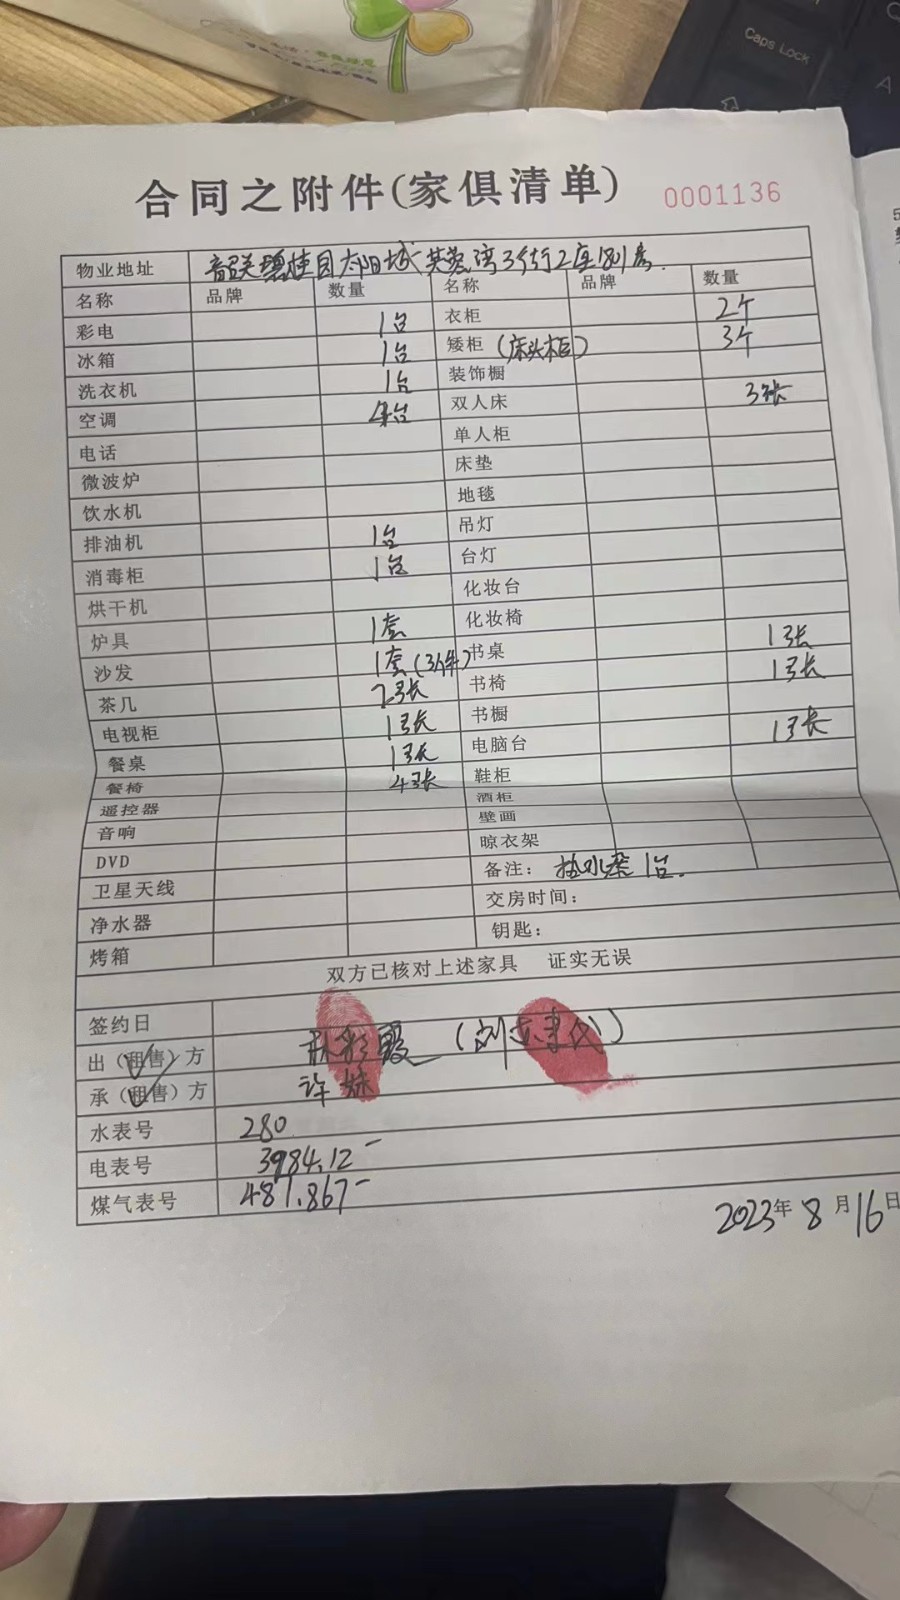 Caps Lock
A
合同之附件(家俱清单) 0001136
物业地址 韶关碧桂园太阳城芙蓉湾3街2座801房.
名称 品牌 数量 名称 品牌 数量
彩电 1台 衣柜 2个
冰箱 1台 矮柜 (床头柜) 3个
洗衣机 1台 装饰橱
空调 4台 双人床 3张
电话 单人柜
微波炉 床垫
饮水机 地毯
排油机 1台 吊灯
消毒柜 1台 台灯
烘干机 化妆台
炉具 1套 化妆椅
沙发 1套(3件) 书桌 1张
茶几 2张 书椅 1张
电视柜 1张 书橱
餐桌 1张 电脑台 1张
餐椅 4张 鞋柜
遥控器 酒柜
音响 壁画
DVD 晾衣架
卫星天线 备注: 热水器 1台.
净水器 交房时间:
烤箱 钥匙:
双方已核对上述家具 证实无误
签约日
出(租售)方 彩霞 (刘 代)
承(租售)方 许妹
水表号 280
电表号 3984.12-
煤气表号 481.867-
2023年 8月16日